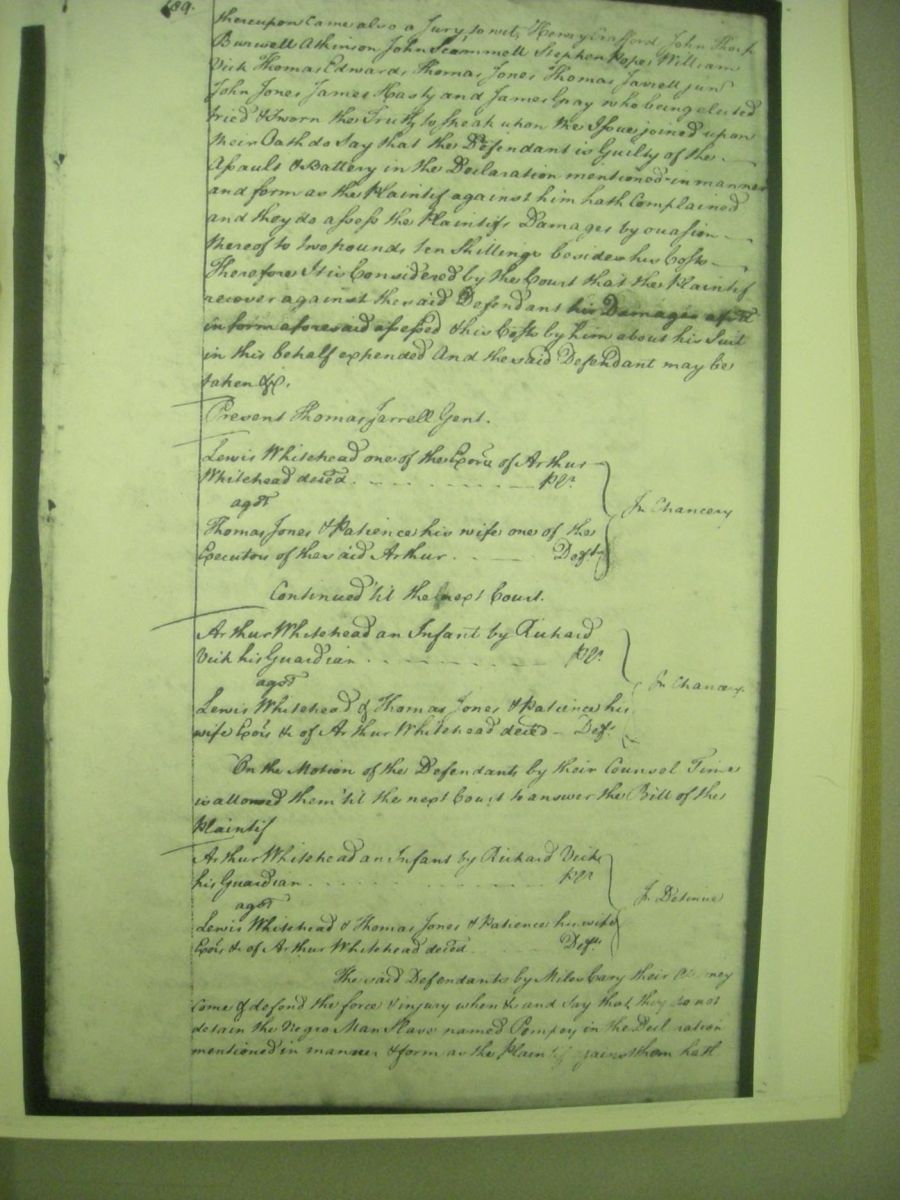 189.
thereupon Came also a Jury, to wit, Henry Crafford John Thorp
Burwell Atkinson John Scammell Stephen Pope William
Vick Thomas Edwards Thomas Jones Thomas Jarrell jun
John Jones James Hasty and James Gray who being elected
tried & Sworn the Truth to speak upon the Issue joined upon
their Oath do Say that the Defendant is Guilty of the
Assault & Battery in the Declaration mentioned in manner
and form as the Plaintif against him hath Complained
and they do assess the Plaintifs Damages by ocasion
thereof to two pounds ten Shillings besides his Costs
Therefore It is Considered by the Court that the Plaintif
recover against the said Defendant his Damages afsd
in form aforesaid assessed & his Costs by him about his Suit
in this behalf expended And the said Defendant may be
taken &c.
Present Thomas Jarrell Gent.
Lewis Whitehead one of the Exors of Arthur
Whitehead deced. Plt.
agst
In Chancery
Thomas Jones & Patience his wife one of the
Executors of the said Arthur. Defts
Continued 'til the next Court.
Arthur Whitehead an Infant by Richard
Vick his Guardian Plt.
agst
In Chancery
Lewis Whitehead & Thomas Jones & Patience his
wife Exors &c of Arthur Whitehead deced Defts
On the Motion of the Defendants by their Counsel Time
is allowed them 'til the next Court to answer the Bill of the
Plaintif
Arthur Whitehead an Infant by Richard Vick
his Guardian Plt
agst
In Detinue
Lewis Whitehead & Thomas Jones & Patience his wife
Exors &c of Arthur Whitehead deced Defts
The said Defendants by Miles Cary their Attorney
come & defend the force & injury when &c and Say that they do not
detain the Negro Man Slave named Pompey in the Declaration
mentioned in manner & form as the Plaintif against them hath